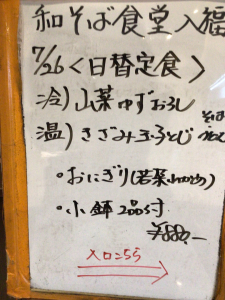 和そば食堂入福
7/26<日替定食>
冷)山菜ゆずおろし
温)きざみ玉子とじ
そば
・おにぎり(若菜
・小鉢2品付
¥880.-
入口こちら